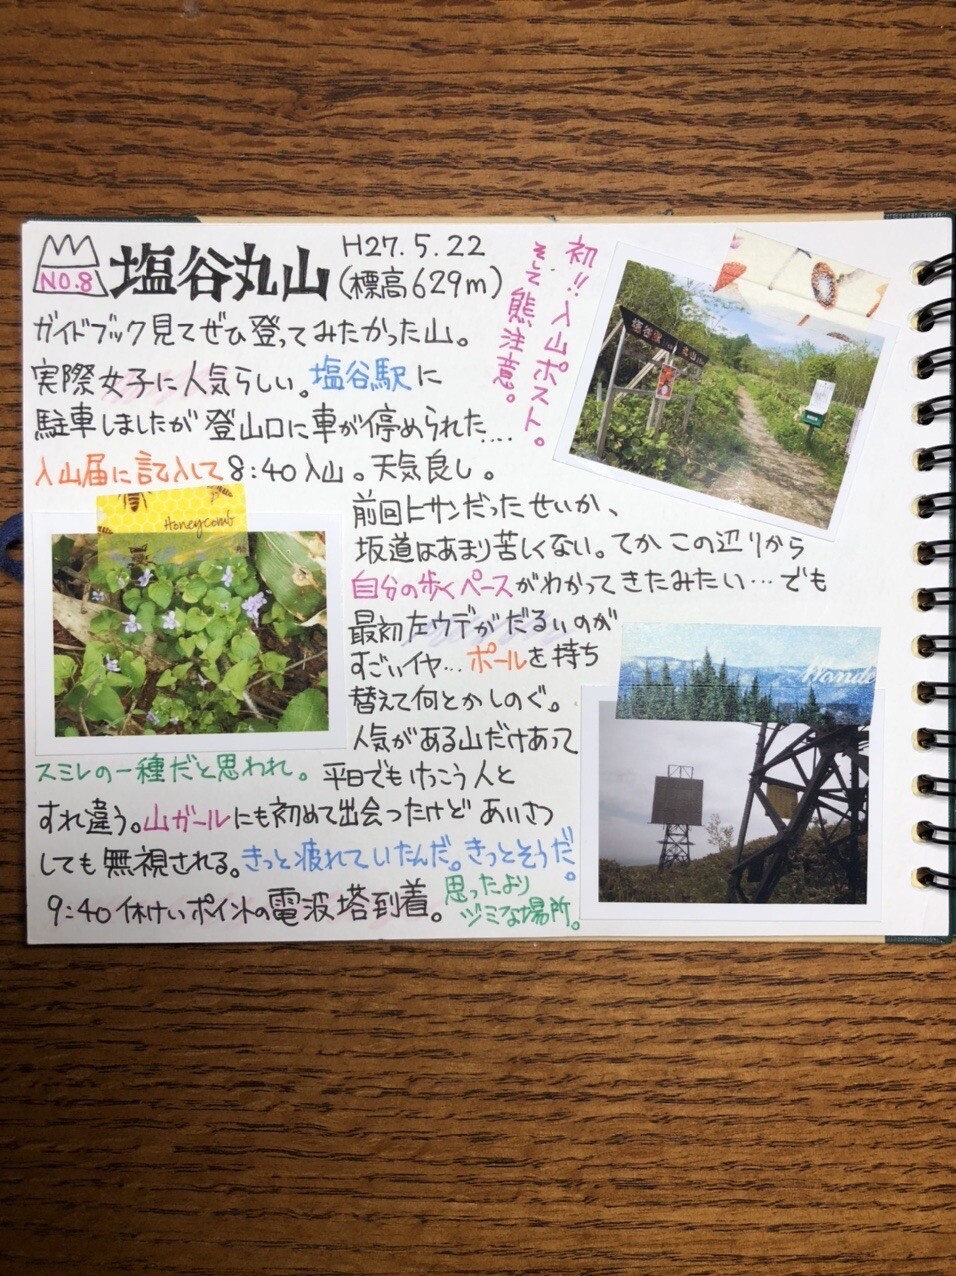 NO.8
塩谷丸山
H27.5.22
(標高629m)
初!!入山ポスト。
そして熊注意。
ガイドブック見てぜひ登ってみたかった山。
実際女子に人気らしい。塩谷駅に
駐車しましたが登山口に車が停められた…
入山届に記入して8:40入山。天気良し。
Honeycomb
前回ヒサンだったせいか、
坂道はあまり苦しくない。てかこの辺りから
自分の歩くペースがわかってきたみたい…でも
最初左ウデがだるいのが
すごいイヤ…ポールを持ち
替えて何とかしのぐ。
人気がある山だけあって
Wande
スミレの一種だと思われ。
平日でもけっこう人と
すれ違う。山ガールにも初めて出会ったけどあいさつ
しても無視される。きっと疲れていたんだ。きっとそうだ。
9:40休けいポイントの電波塔到着。
思ったより
ジミな場所。